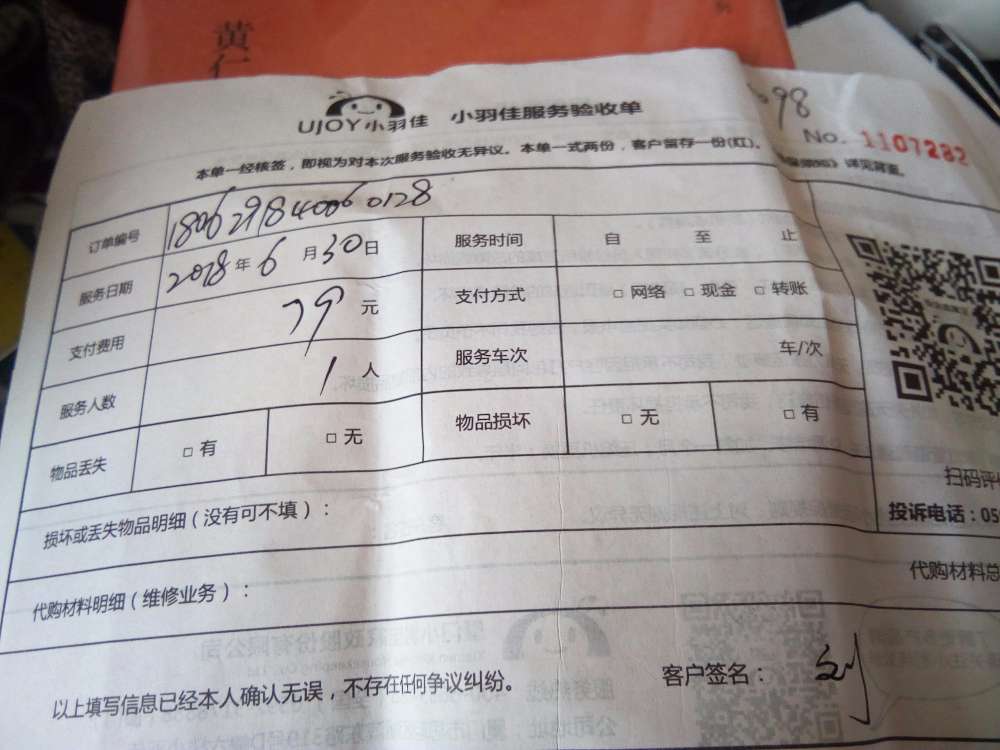 黄仁
UJOY小羽佳 小羽佳服务验收单
98
No. 1107282
本单一经核签，即视为对本次服务验收无异议。本单一式两份，客户留存一份(红)。
详见背面。
订单编号 180629840060128
服务日期 2018年6月30日 服务时间 自 至 止
支付费用 79元 支付方式 □ 网络 □ 现金 □ 转账
服务人数 1人 服务车次 车/次
物品丢失 □ 有 □ 无 物品损坏 □ 无 □ 有
扫码评
损坏或丢失物品明细（没有可不填）： 投诉电话：05
代购材料明细（维修业务）： 代购材料总
以上填写信息已经本人确认无误，不存在任何争议纠纷。 客户签名：